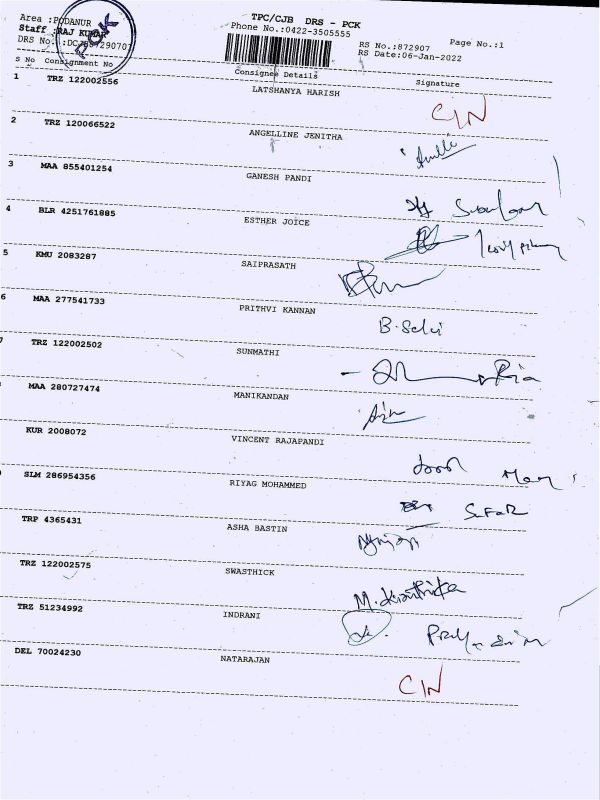 TPC/CJB DRS - PCK
Area :PODANUR
Phone No.:0422-3505555
Staff :RAJ KUMAR
PCK
RS No.:872907 Page No.:1
DRS No.
RS Date:06-Jan-2022
S No Consignment No Consignee Details Signature
1 TRZ 122002556 LATSHANYA HARISH
CIN
2 TRZ 120066522 ANGELLINE JENITHA
3 MAA 855401254 GANESH PANDI
4 BLR 4251761885 ESTHER JOICE
5 KMU 2083287 SAIPRASATH
6 MAA 277541733 PRITHVI KANNAN
B. Selvi
7 TRZ 122002502 SUNMATHI
Ria
MAA 280727474 MANIKANDAN
KUR 2008072 VINCENT RAJAPANDI
SLM 286954356 RIYAG MOHAMMED
TRP 4365431 ASHA BASTIN
TRZ 122002575 SWASTHICK
M. Kiruthika
TRZ 51234992 INDRANI
DEL 70024230 NATARAJAN
CIN